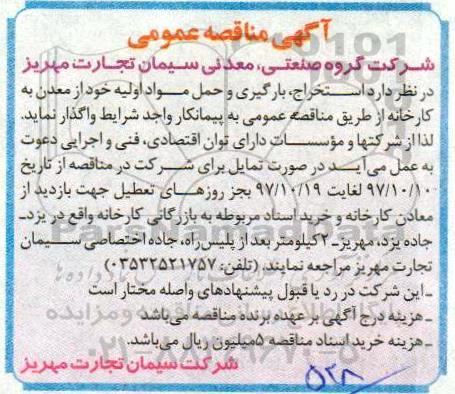 آگهی مناقصه عمومی
شرکت گروه صنعتی، معدنی سیمان تجارت مهریز
در نظر دارد استخراج، بارگیری و حمل مواد اولیه خود از معدن به
کارخانه از طریق مناقصه عمومی به پیمانکار واجد شرایط واگذار نماید.
لذا از شرکتها و مؤسسات دارای توان اقتصادی، فنی و اجرایی دعوت
به عمل می‌آید در صورت تمایل برای شرکت در مناقصه از تاریخ
۹۷/۱۰/۱۰ لغایت ۹۷/۱۰/۱۹ بجز روزهای تعطیل جهت بازدید از
معادن کارخانه و خرید اسناد مربوطه به بازرگانی کارخانه واقع در یزد-
جاده یزد، مهریز-۲کیلومتر بعد از پلیس‌راه، جاده اختصاصی سیمان
تجارت مهریز مراجعه نمایند. (تلفن: ۰۳۵۳۲۵۲۱۷۵۷)
-این شرکت در رد یا قبول پیشنهادهای واصله مختار است
-هزینه درج آگهی بر عهده برنده مناقصه می‌باشد
-هزینه خرید اسناد مناقصه ۵میلیون ریال می‌باشد.
شرکت سیمان تجارت مهریز
۵۲۸
ParsNamadData